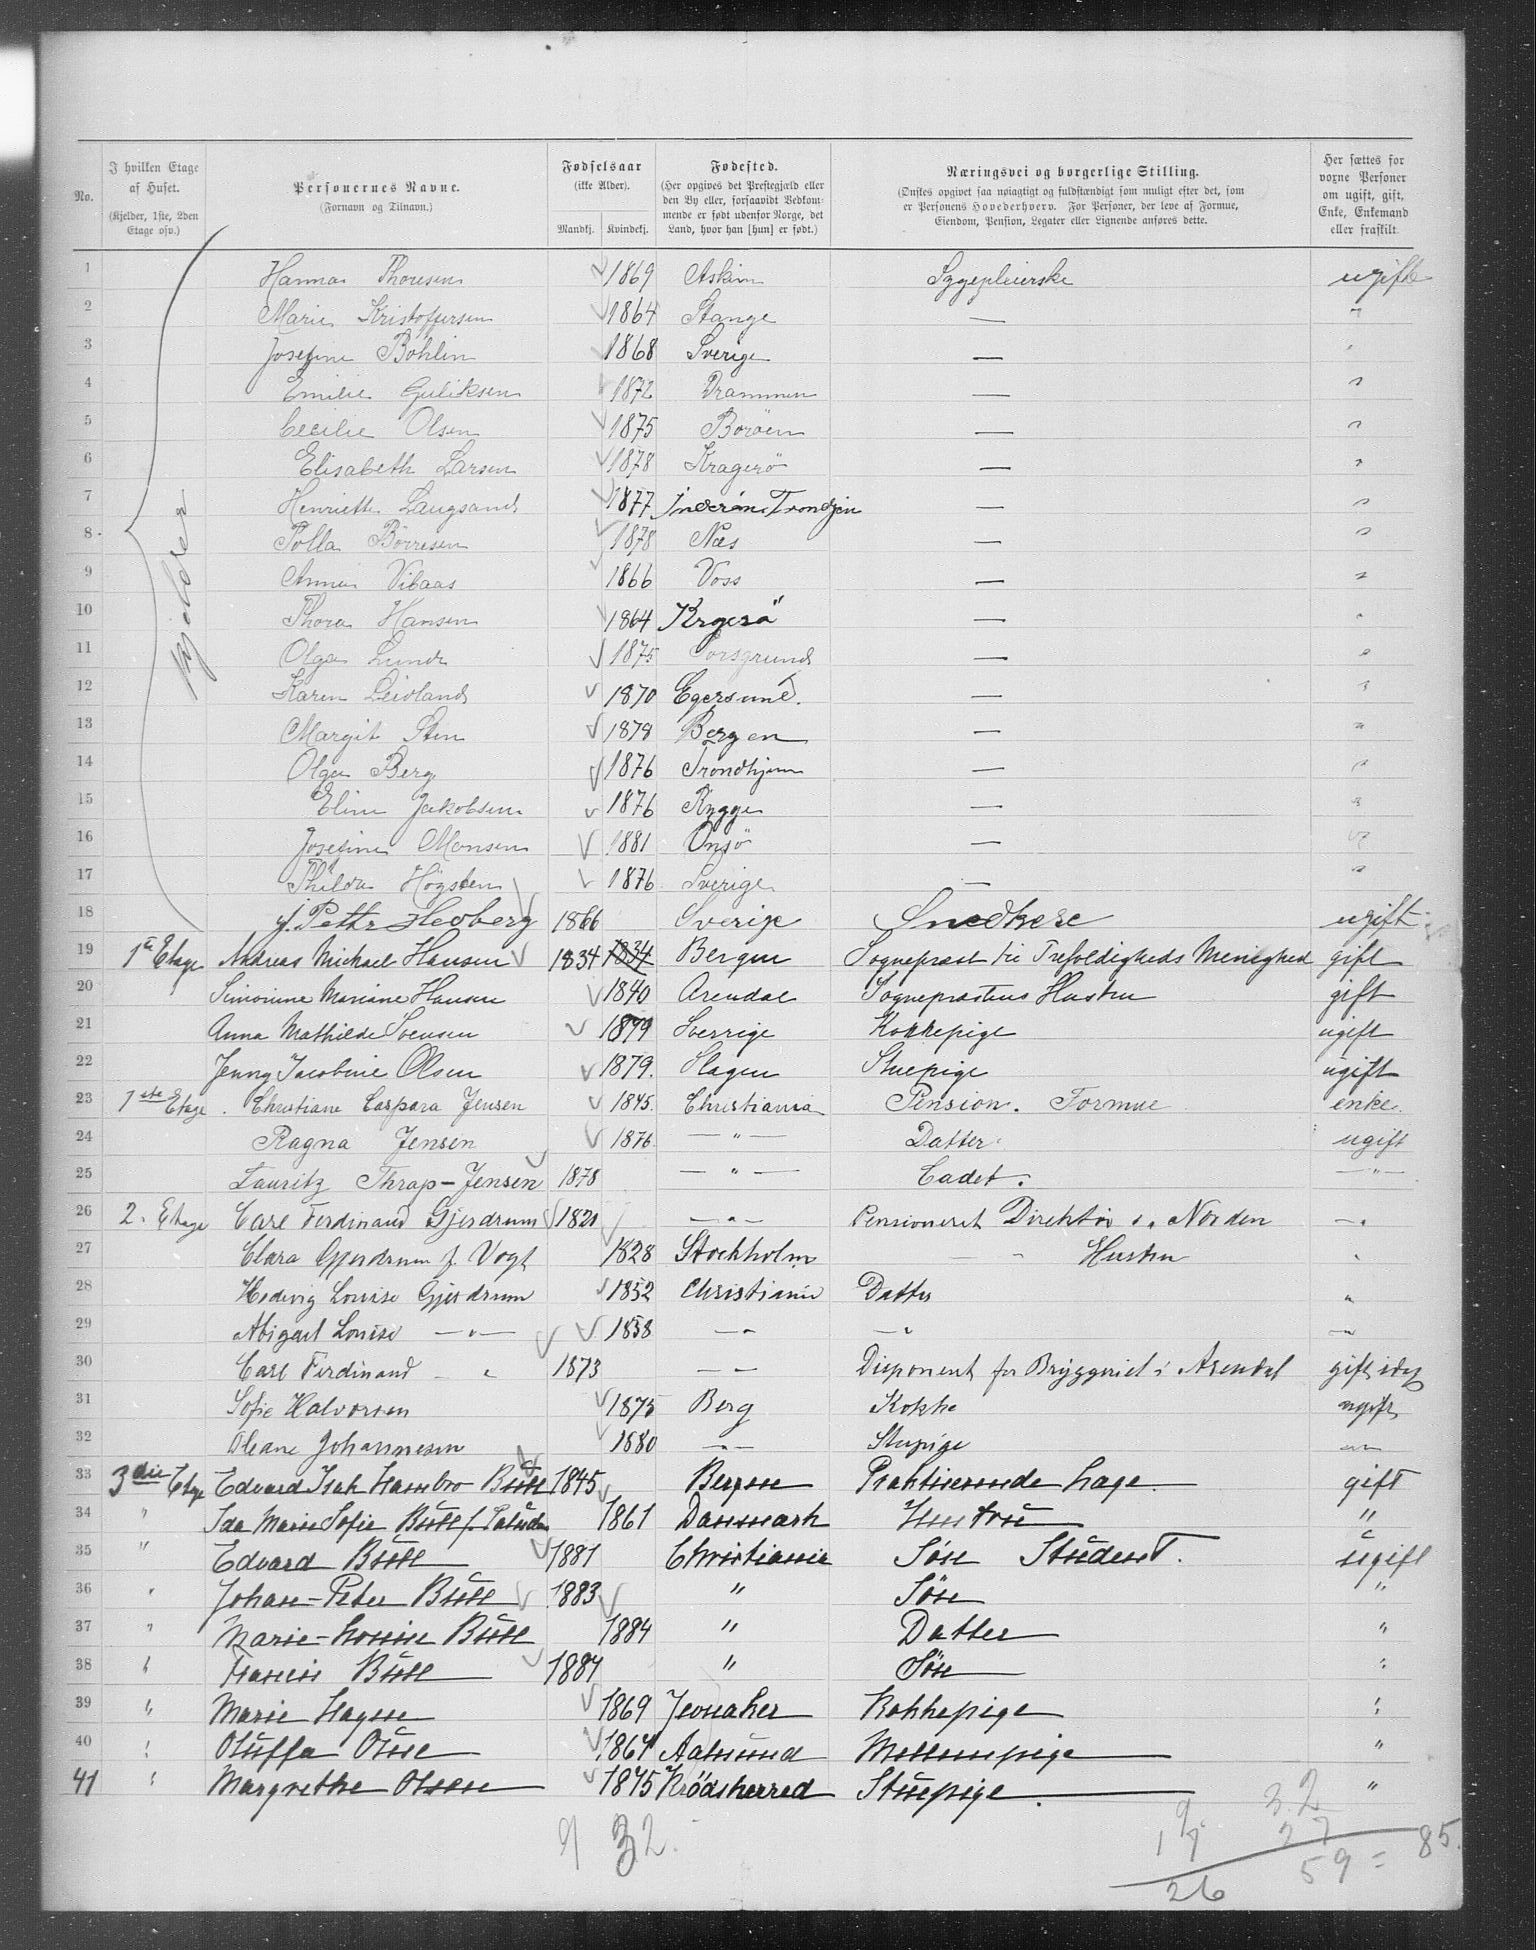 No.
I hvilken Etage af Huset.
(Kjelder, 1ste, 2den Etage osv.)
Personernes Navne.
(Fornavn og Tilnavn.)
Fødselsaar
(ikke Alder).
Mandkj. Kvindekj.
Fødested.
(Her opgives det Prestegjæld eller den By eller, forsaavidt Bedkommende er født udenfor Norge, det Land, hvor han [hun] er født.)
Næringsvei og borgerlige Stilling.
(Ønskes opgivet saa nøiagtigt og fuldstændigt som muligt efter det, som er Personens Hovederhverv. For Personer, der leve af Formue, Eiendom, Pension, Legater eller Lignende anføres dette.
Her sættes for voxne Personer om ugift, gift, Enke, Enkemand eller fraskilt
Kjelder
1 Hanna Thoresen 1869 Askim Sygepleierske ugift
2 Marie Kristoffersen 1864 Stange — "
3 Josefine Böhlin 1868 Sverige — "
4 Emilie Guliksen 1872 Drammen — "
5 Cecilie Olsen 1875 Boröen — "
6 Elisabeth Larsen 1878 Kragerö — "
7 Henriette Langsand 1877 Inderøen Trondjem — "
8 Polla Börresen 1878 Næs — "
9 Anna Vibaas 1866 Voss — "
10 Thora Hansen 1864 Krgerø — "
11 Olga Lund 1875 Porsgrund — "
12 Karen Leidland 1870 Egersund. — "
13 Margit Sten 1878 Bergen — "
14 Olga Berg 1876 Trondhjem — "
15 Eline Jakobsen 1876 Rygge — "
16 Josefine Monsen 1881 Onsö — "
17 Thilda Högsten 1876 Sverige — "
18 J. Pettr Hedberg 1866 Sverige Snedkere ugift
19 1ste Etage Andreas Michael Hansen 1834 1834 Bergen Sogneprest til Trefoldigheds Menighed gift
20 Simonine Mariane Hansen 1840 Arendal Sogneprestens Hustru gift
21 Anna Mathilde Svensen 1879 Sverrige Kokkepige ugift
22 Jenny Jacobine Olsen 1879. Slagen Stuepige ugift
23 1ste Etage. Christiane Caspara Jensen 1845. Christiania Pension. Formue enke.
24 Ragna Jensen 1876. — " — Datter. ugift
25 Lauritz Thrap-Jensen 1878 — " — Cadet. — " —
26 2. Etage Carl Ferdinand Gjerdrum 1821 — " — Pensioneret Direktör i. Norden — "
27 Clara Gjerdrum f. Vogt 1828 Stockholm — " Hustru "
28 Hedvig Louise Gjerdrum 1852 Christiania Datter "
29 Abigael Louise — " — 1858 — " — " — "
30 Carl Ferdinand — " 1873 — " — Disponent for Bryggeriet i Arendal gift
31 Sofie Halvorsen 1875 Berg Kokke ugift
32 Oleane Johannesen 1880 — " — Stupige — " —
33 3die Etage Edvard Isak Hambro Bull 1845 Bergen Praktiserende Læge. gift
34 " Ida Marie Sofie Bull f. Paludan 1861 Danmark Hustru "
35 " Edvard Bull 1881 Christiania Søn Student. ugift
36 " Johan-Peter Bull 1883 " Søn "
37 " Marie-Louise Bull 1884 " Datter "
38 " Francis Bull 1887 " Søn "
39 " Marie Hagen 1869 Jevnaker Kokkepige "
40 " Oluffa Olsen 1867 Aalesund Mellempige "
41 " Margrethe Olsen 1875 Krödsherred Stuepige. "
9 32.
9
17
26
32
27
59 = 85.